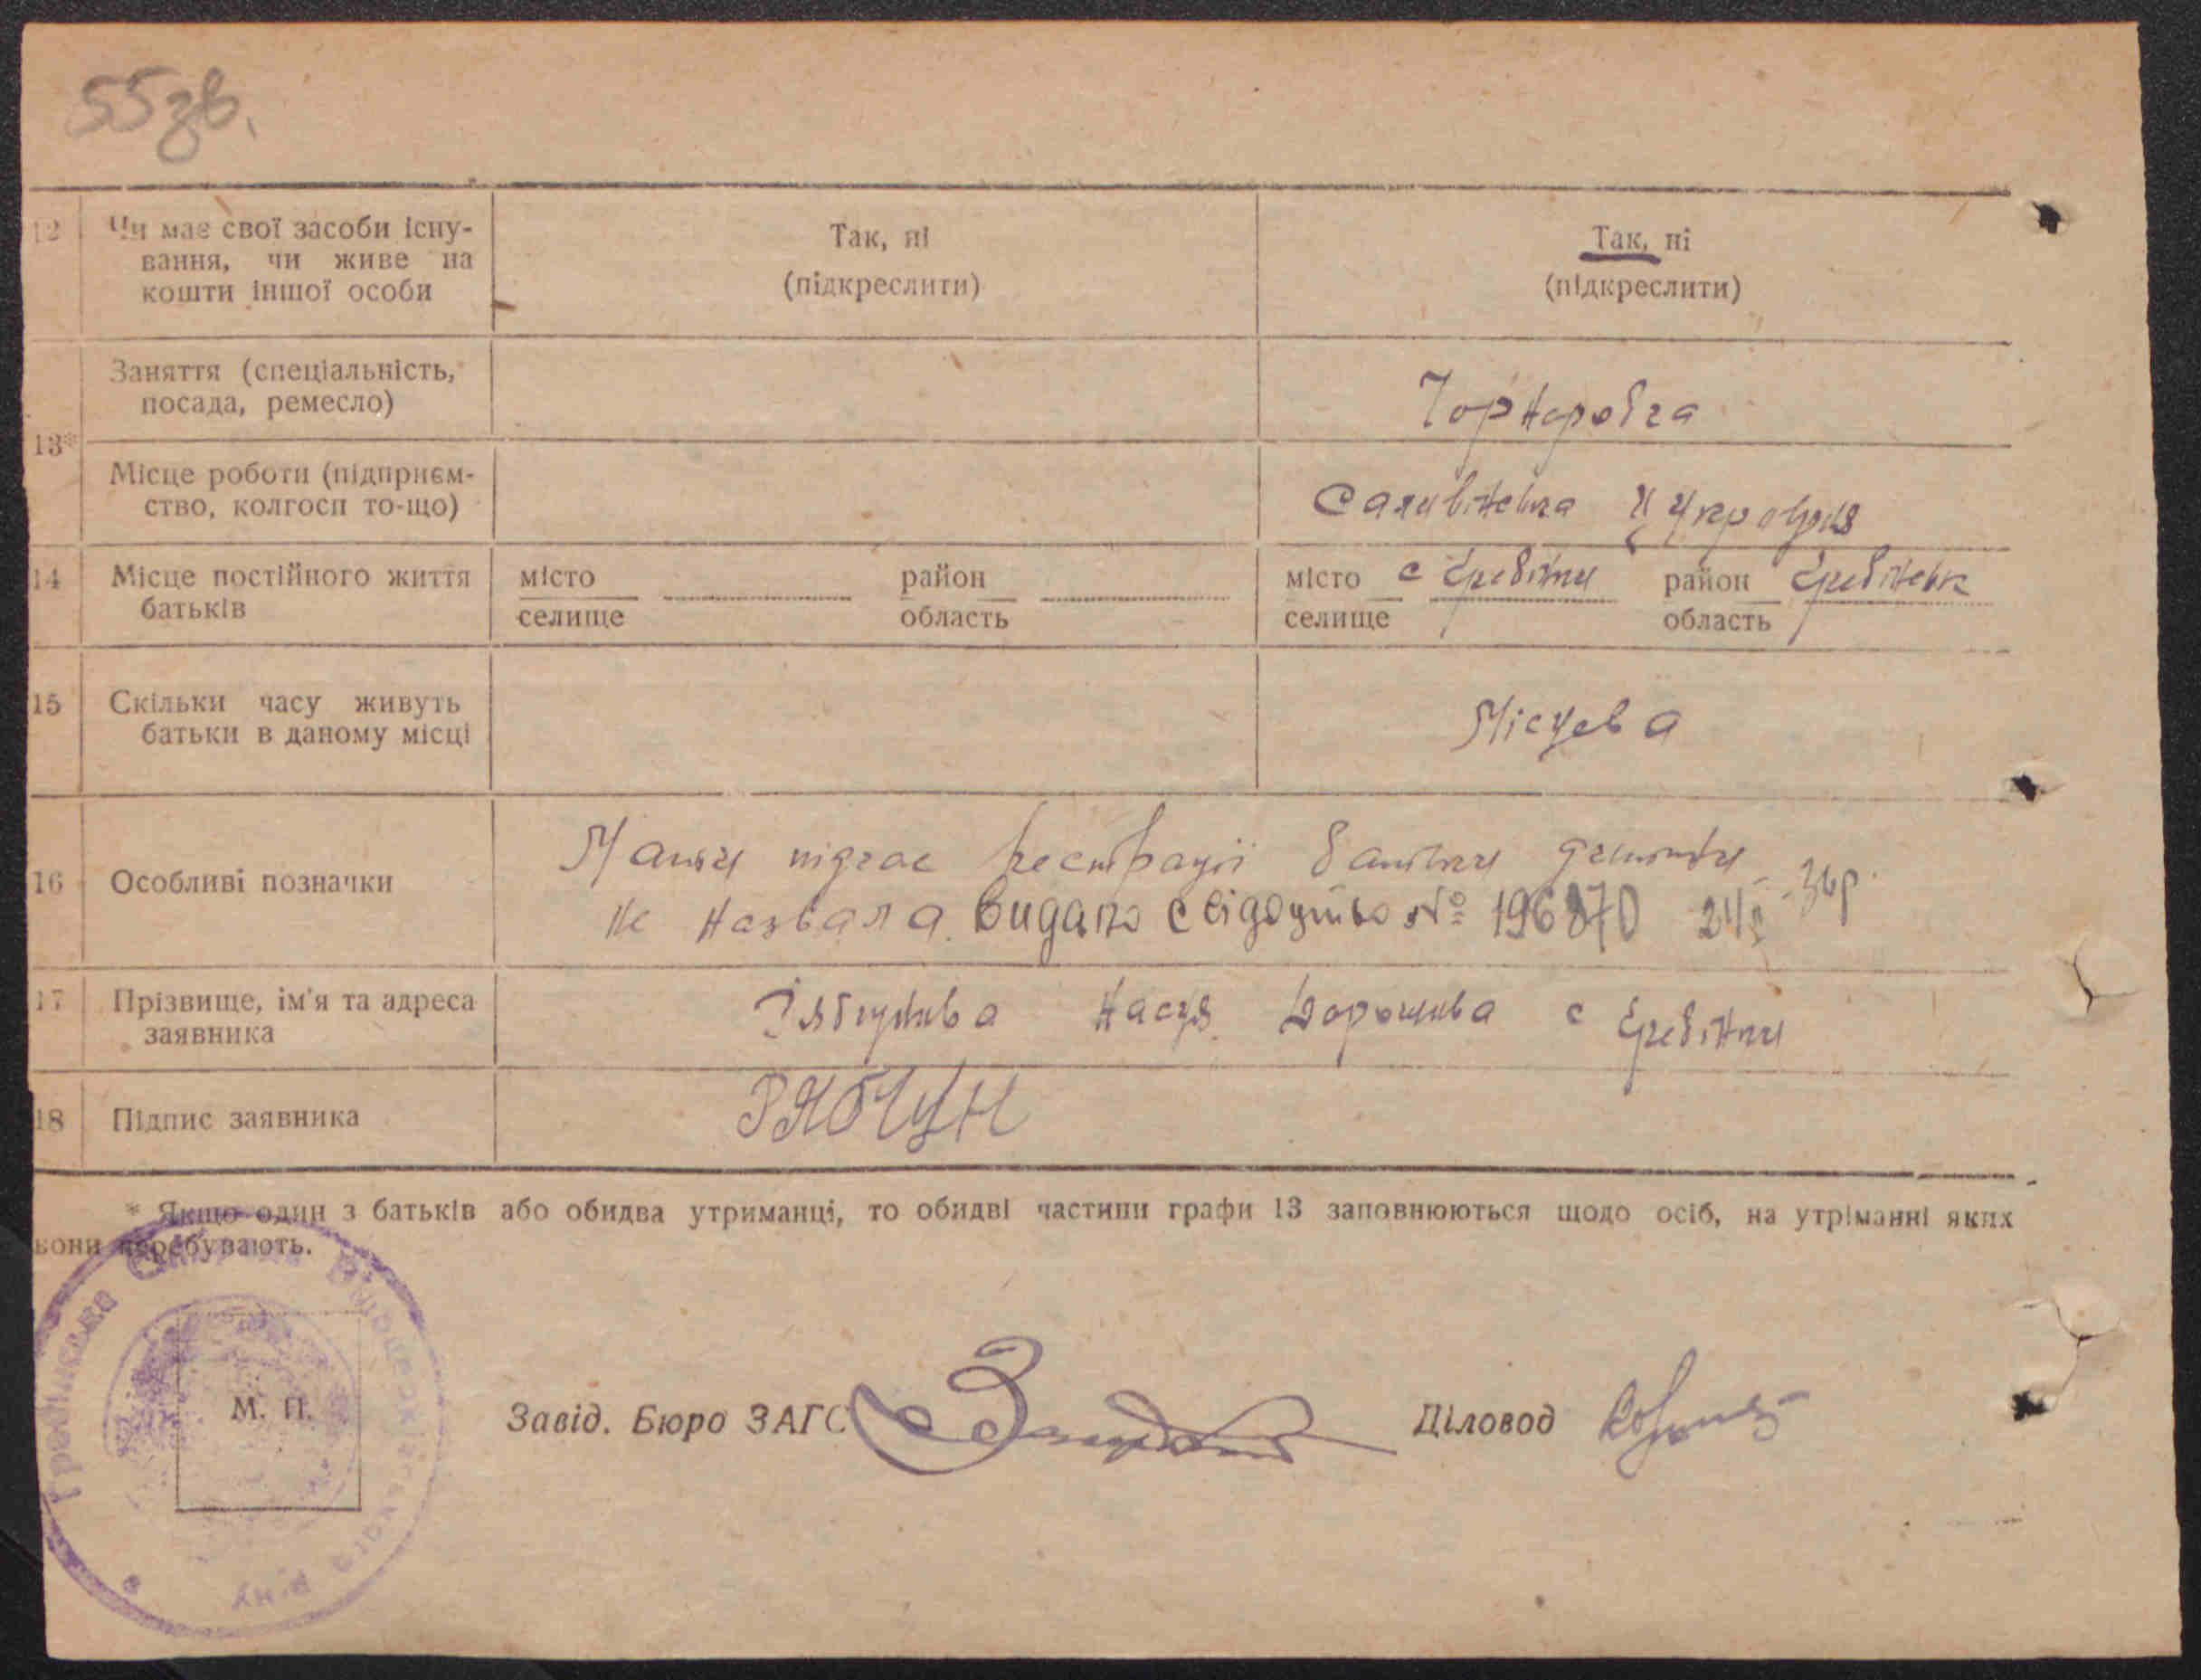 55зв.
12 Чи має свої засоби існу-
вання, чи живе на
кошти іншої особи
Так, ні
(підкреслити)
Так, ні
(підкреслити)
13*
Заняття (спеціальність,
посада, ремесло)
Чорноробча
Місце роботи (підприєм-
ство, колгосп то-що)
14 Місце постійного життя
батьків
місто район
селище область
місто с Гребінки район Гребінськ
селище область
15 Скільки часу живуть
батьки в даному місці
Місцева
16 Особливі позначки
Мати підчас реєстрації батька дитини
не назвала. Видано свідоцтво № 196870
17 Прізвище, ім'я та адреса
заявника
Настя с Гребінки
18 Підпис заявника
РЯБЧУН
* Якщо один з батьків або обидва утриманці, то обидві частини графи 13 заповнюються щодо осіб, на утріманні яких
вони перебувають.
М. П.
Завід. Бюро ЗАГС
Діловод